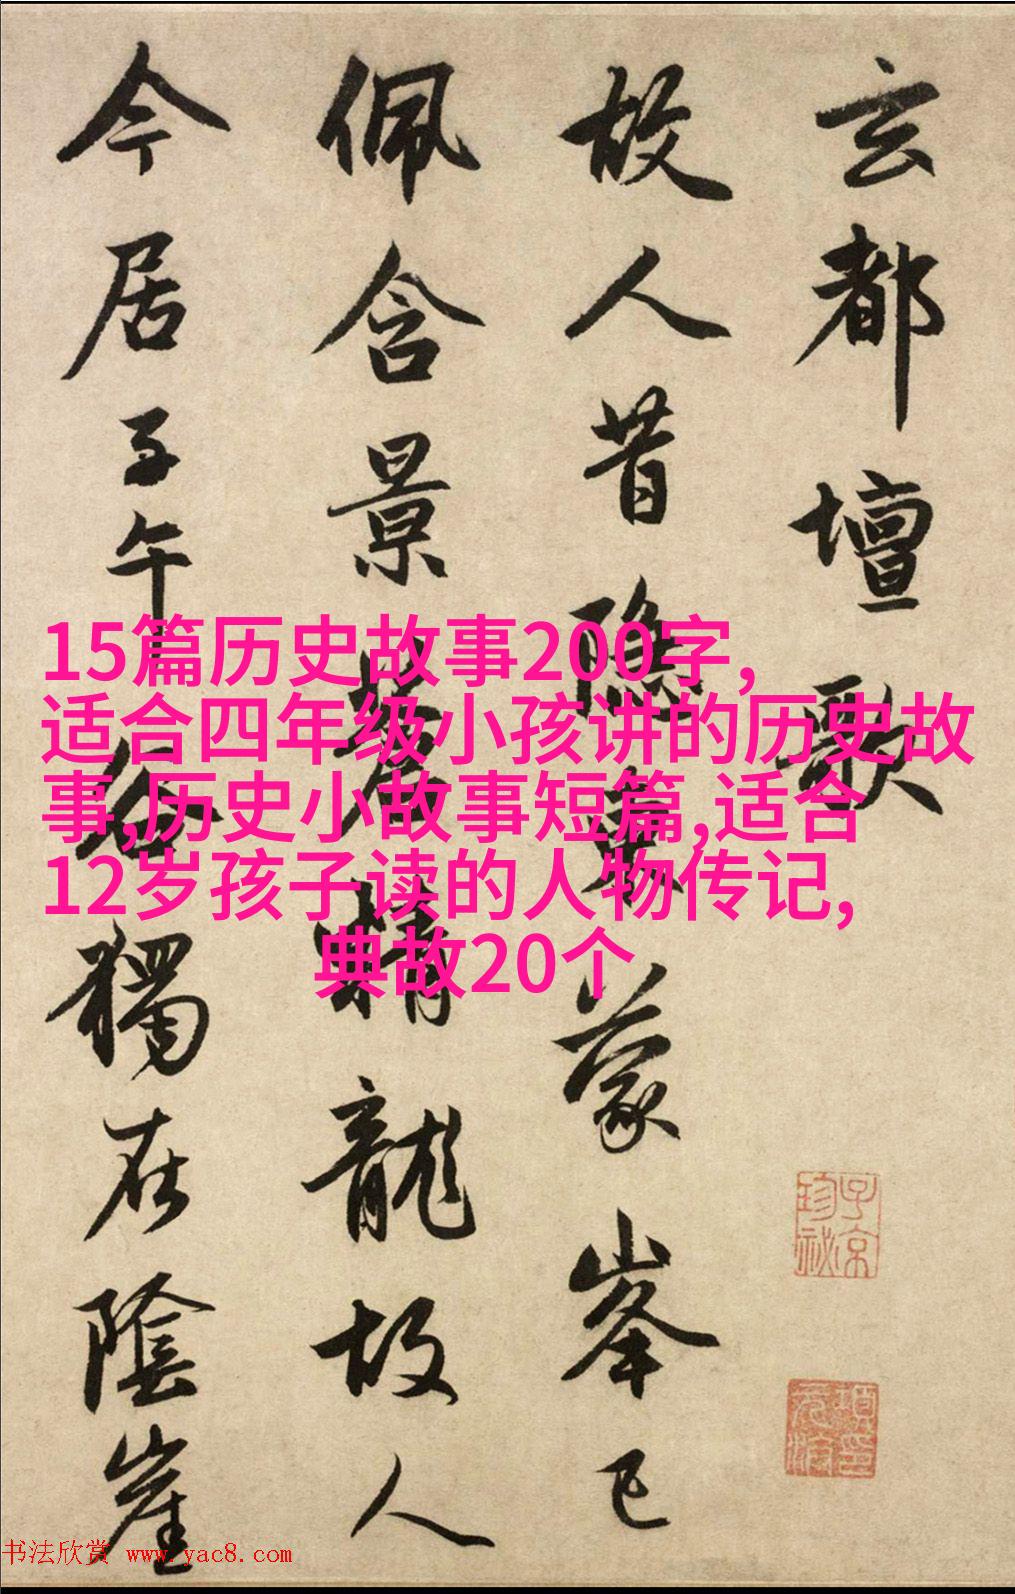 玄都壇歌
故人昔隱東蒙峯已
佩含景蒼精龍故人
今居子午谷獨在陰崖
15篇历史故事200字,
适合四年级小孩讲的历史故
事,历史小故事短篇,适合
12岁孩子读的人物传记,
典故20个
子京珍祕
项元汴印
书法欣赏 www.yac8.com